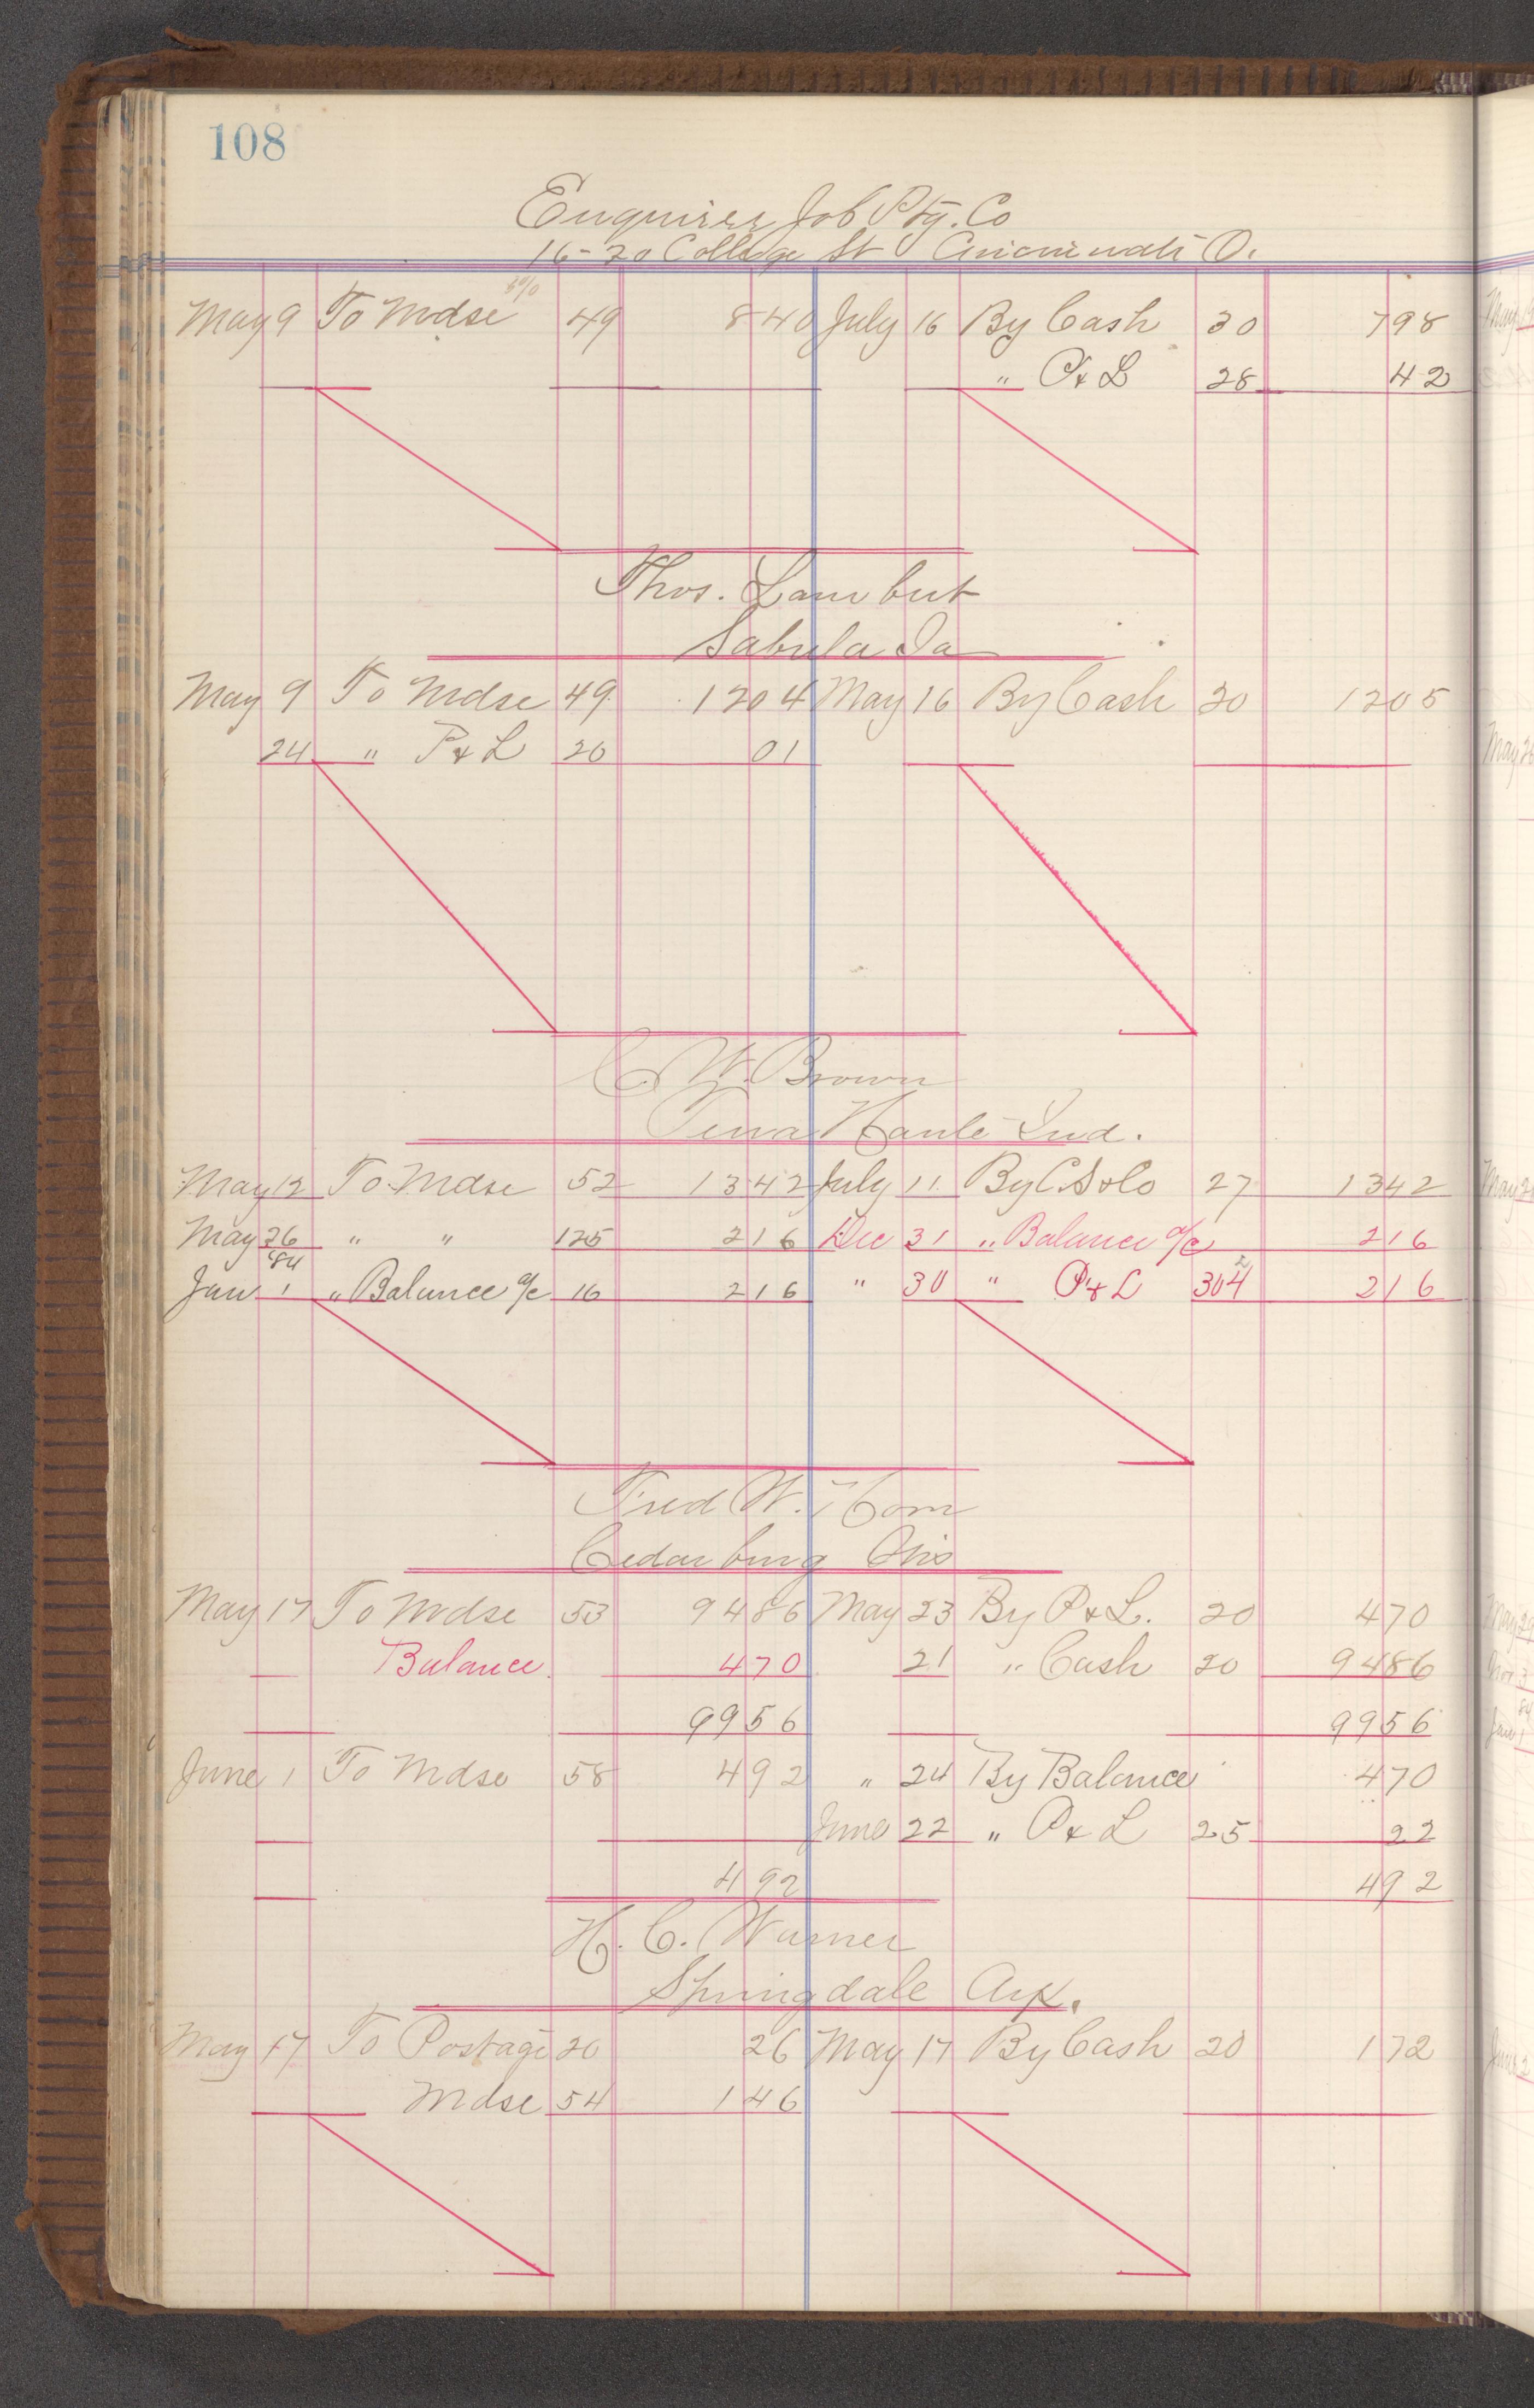 108
Enquirer Job Ptg. Co
16-20 College St Cincinnati O.
May 9 To Mdse 5% 49 8 40 July 16 By Cash 30 7 98
" P & L 28 42
Thos. Lambert
Sabula Ia
May 9 To Mdse 49 12 04 May 16 By Cash 20 12 05
24 " P & L 20 01
C. W. Brown
Terra Haute Ind.
May 12 To Mdse 52 13 42 July 11 By C. S & Co 27 13 42
May 26 " " 125 2 16 Dec 31 " Balance a/c 2 16
'84
Jan 1 " Balance a/c 16 2 16 " 30 " P & L 304 2 16
Fred W. Horn
Cedarburg Wis
May 17 To Mdse 53 94 86 May 23 By P & L. 20 4 70
Balance 4 70 21 " Cash 20 94 86
99 56 99 56
June 1 To Mdse 58 4 92 " 24 By Balance 4 70
June 22 " P & L 25 22
4 92 4 92
H. C. Warner
Springdale Ark.
May 17 To Postage 20 26 May 17 By Cash 20 1 72
Mdse 54 1 46